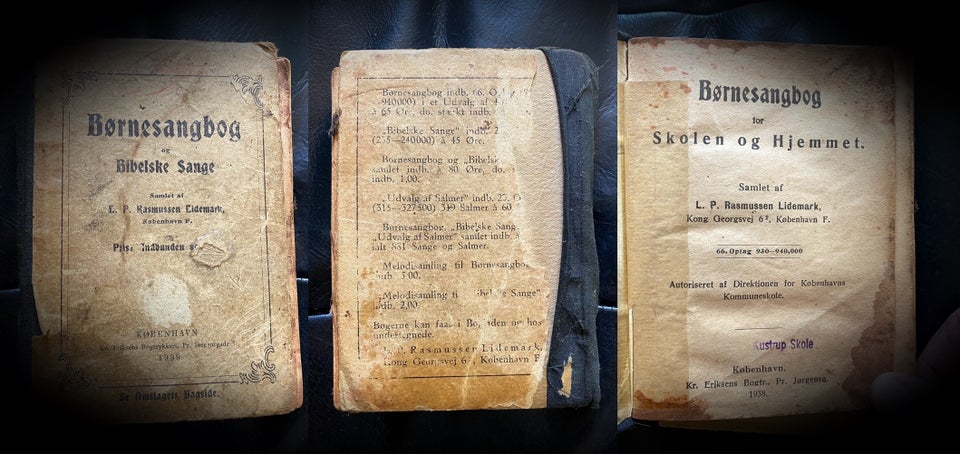 Børnesangbog
og
Bibelske Sange
Samlet af
L. P. Rasmussen Lidemark,
København F.
Pris: Indbunden
KØBENHAVN
Kr. Eriksens Bogtrykkeri, Pr. Jørgensgade
1939
Se Omslagets Bagside.
Børnesangbog indb. 66. Opl
940000) i et Udvalg af
à 65 Øre, do. stærkt indb.
„Bibelske Sange“ indb. 2
(235—240000) à 45 Øre.
Børnesangbog og „Bibelsk
samlet indb. à 80 Øre, do. i
indb. 1,00.
„Udvalg af Salmer“ indb. 23. O
(315—327500) 319 Salmer à 60
Børnesangbog, „Bibelske Sang
„Udvalg af Salmer“ samlet indb. à
ialt 831 Sange og Salmer.
Melodisamling til Børnesangbog
indb. 5,00.
„Melodisamling til Bibelske Sange“
indb. 2,00.
Bøgerne kan faas i Bogladen og hos
undertegnede.
L. P. Rasmussen Lidemark,
Kong Georgsvej 6², København F
Børnesangbog
for
Skolen og Hjemmet.
Samlet af
L. P. Rasmussen Lidemark,
Kong Georgsvej 6², København F.
66. Oplag 930—940,000
Autoriseret af Direktionen for Københavns
Kommuneskole.
Kustrup Skole
København.
Kr. Eriksens Bogtr., Pr. Jørgensg.
1938.